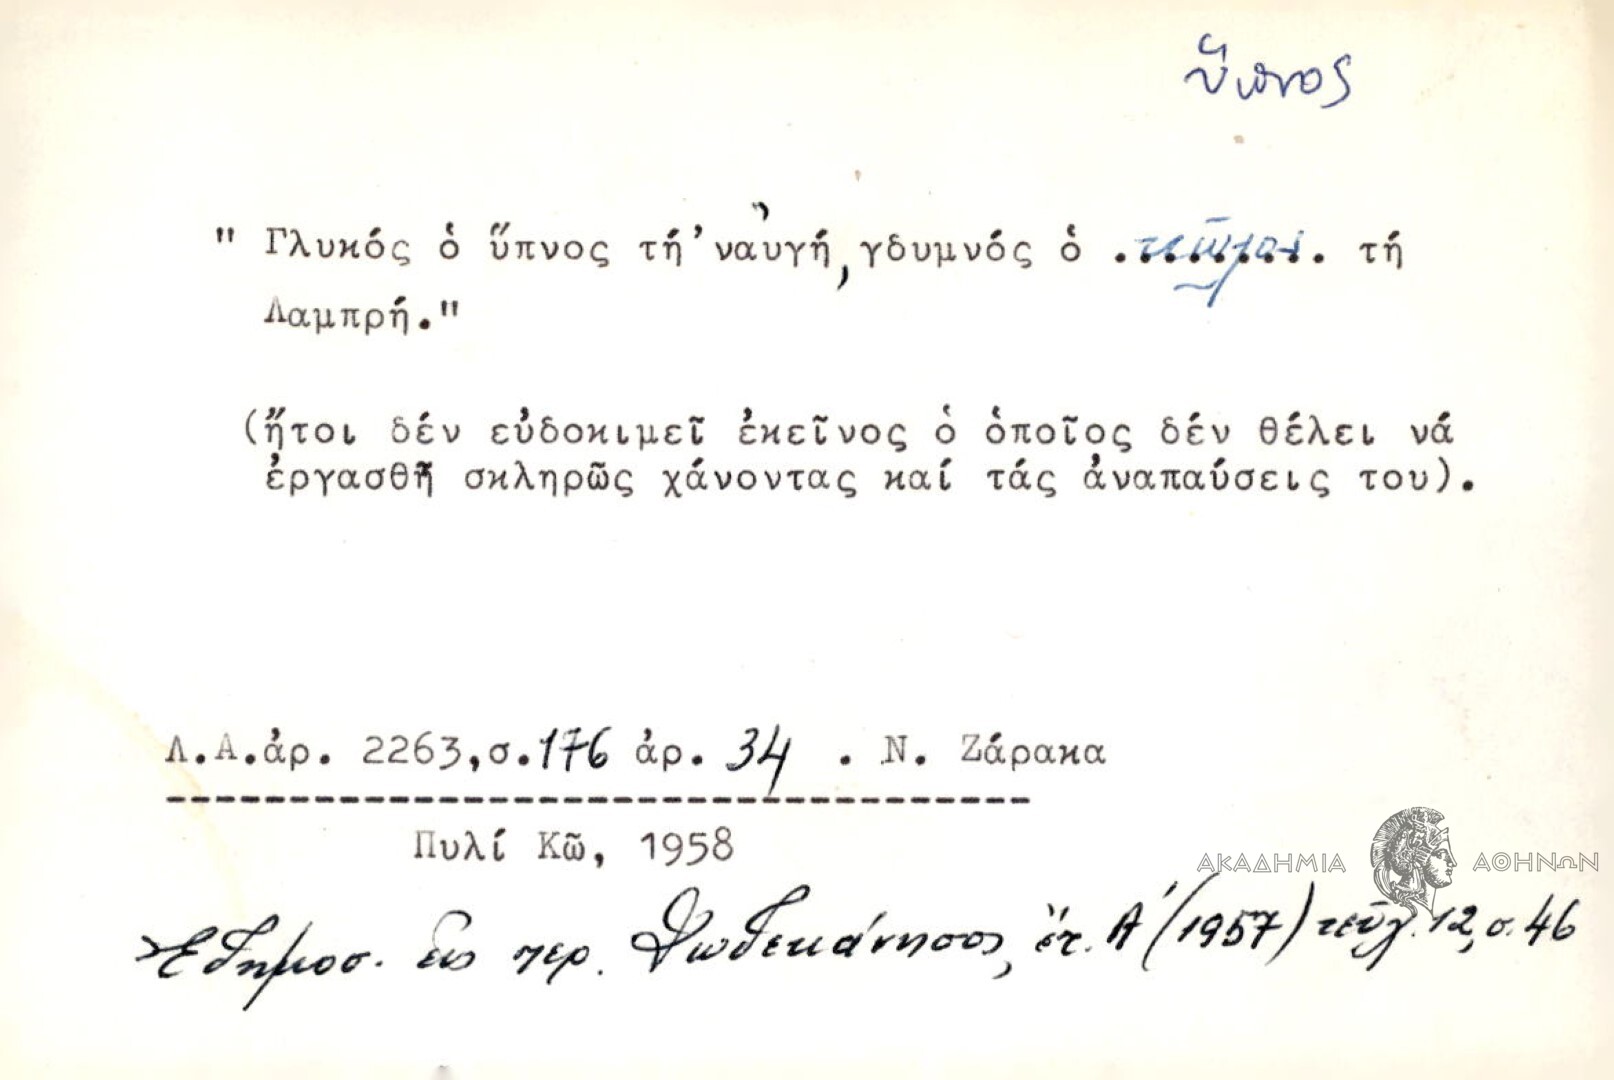 ὕπνος
" Γλυκός ὁ ὕπνος τή 'ναυγή, γδυμνός ὁ ........ τή
Λαμπρή."
(ἤτοι δέν εὐδοκιμεῖ ἐκεῖνος ὁ ὁποῖος δέν θέλει νά
ἐργασθῆ σκληρῶς χάνοντας καί τάς ἀναπαύσεις του).
Λ.Α.ἀρ. 2263,σ.176 ἀρ. 34 . Ν. Ζάρακα
Πυλί Κῶ, 1958
ΑΚΑΔΗΜΙΑ ΑΘΗΝΩΝ
Ἐδημοσ. εἰς περ. Δωδεκάνησος, ἔτ. Α' (1957) τεῦχ. 12, σ. 46